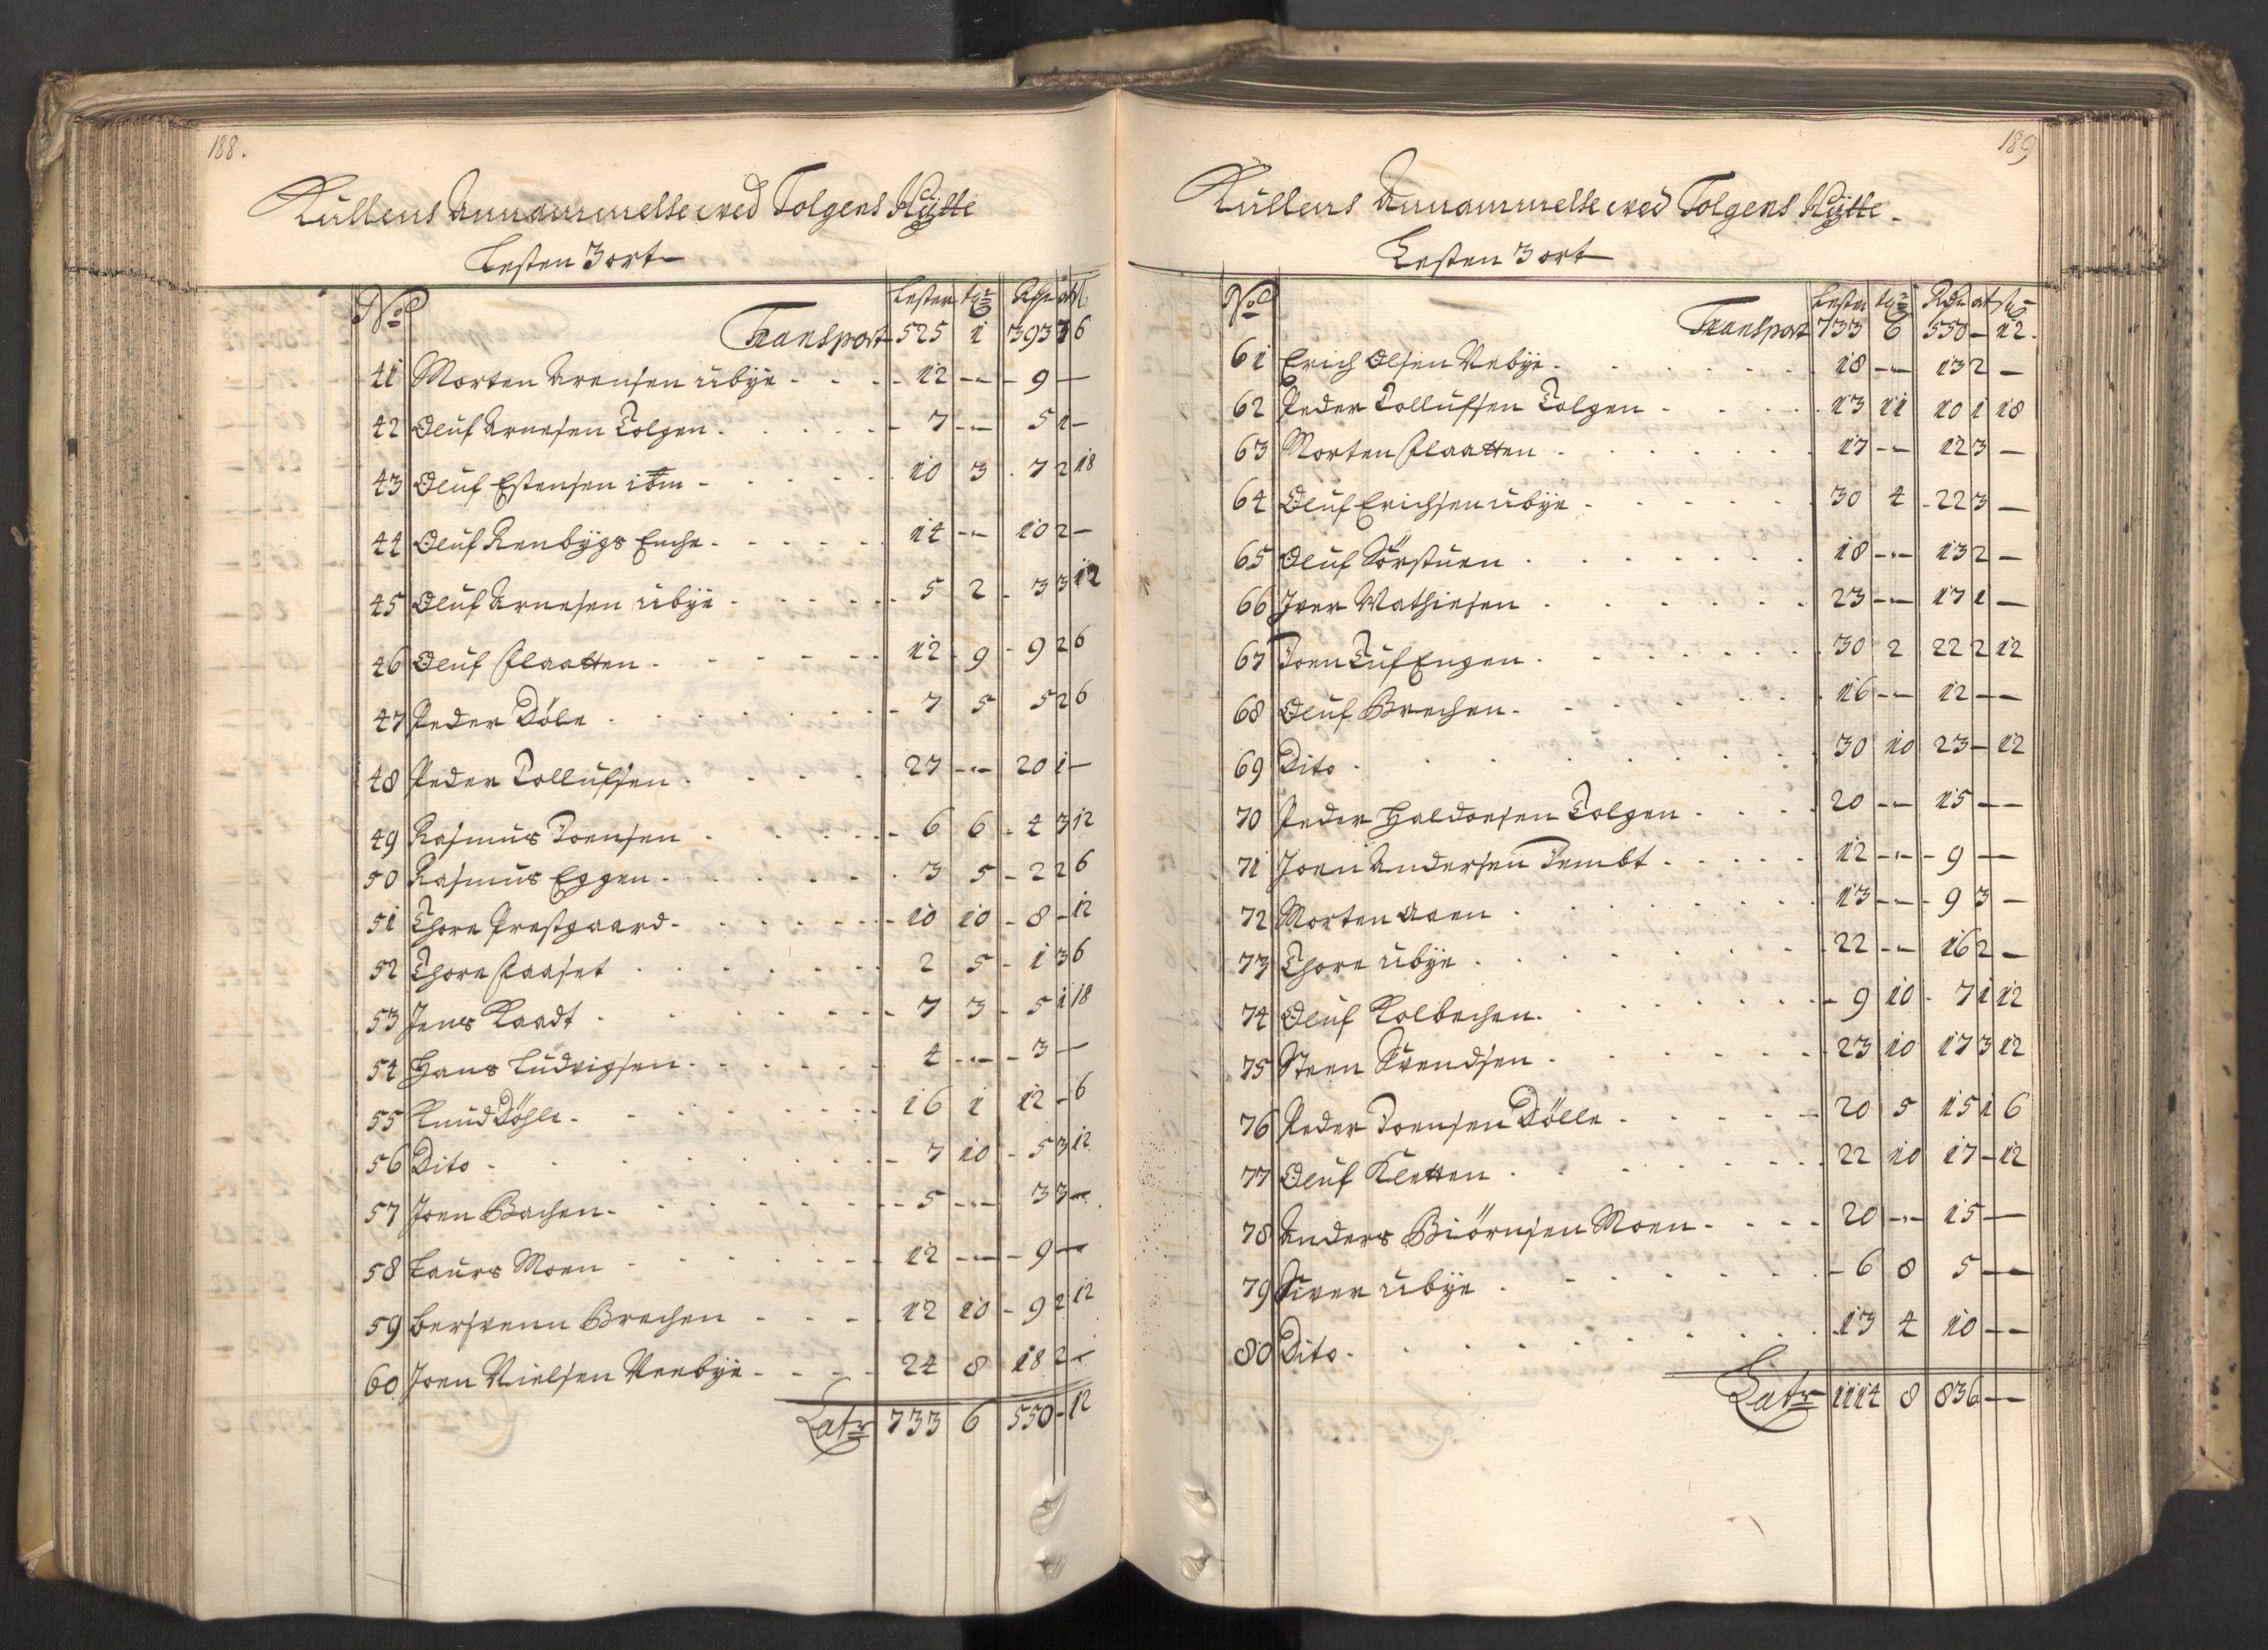 188.
Kullens Annammelse wed Tolgens Hÿtte
Lesten 3 ort
No Lester tdr Rdr ort ß
Transport 525 1 393 3 6
41 Morten Arensen Ubÿe 12 - 9 -
42 Oluf Arnesen Tolgen 7 - 5 1 -
43 Oluf Estensen ibm 10 3 7 2 18
44 Oluf Renbÿgs Enche 14 - 10 2 -
45 Oluf Arnesen Ubÿe 5 2 3 3 12
46 Oluf Flaatten 12 9 9 2 6
47 Peder Döle 7 5 5 2 6
48 Peder Tollufsen 27 - 20 1 -
49 Rasmus Joensen 6 6 4 3 12
50 Rasmus Eggen 3 5 2 2 6
51 Thore Prestgaard 10 10 8 - 12
52 Thore Faaset 2 5 1 3 6
53 Jens Raadt 7 3 5 1 18
54 Hans Ludvigsen 4 - 3 -
55 Knud Döhle 16 1 12 - 6
56 Dito 7 10 5 3 12
57 Joen Bachen 5 - 3 3 -
58 Laurs Moen 12 - 9 -
59 Bersvenn Brechen 12 10 9 2 12
60 Joen Nielsen Neebÿe 24 8 18 2 -
Latr 733 6 550 - 12
189
Kullens Annammelse wed Tolgens Hÿtte
Lesten 3 ort
No Lester tdr Rdr ort ß
Transport 733 6 550 - 12
61 Erich Olsen Nebÿe 18 - 13 2 -
62 Peder Tollufsen Tolgen 13 11 10 1 18
63 Morten Flaatten 17 - 12 3 -
64 Oluf Erichsen Ubÿe 30 4 22 3 -
65 Oluf Sörstuen 18 - 13 2 -
66 Iver Mathiesen 23 - 17 1 -
67 Joen Tuf Engen 30 2 22 2 12
68 Oluf Brechen 16 - 12 - -
69 Dito 30 10 23 - 12
70 Peder Haldoesen Tolgen 20 - 15 - -
71 Joen Andersen Tembt 12 - 9 -
72 Morten Aaen 13 - 9 3 -
73 Thore Ubÿe 22 - 16 2 -
74 Oluf Kolbechen 9 10 7 1 12
75 Steen Svendsen 23 10 17 3 12
76 Peder Joensen Dölle 20 5 15 1 6
77 Oluf Kletten 22 10 17 - 12
78 Anders Biörnsen Moen 20 - 15 -
79 Siver Ubÿe 6 8 5 - -
80 Dito 13 4 10 - -
Latr 1114 8 836 - -